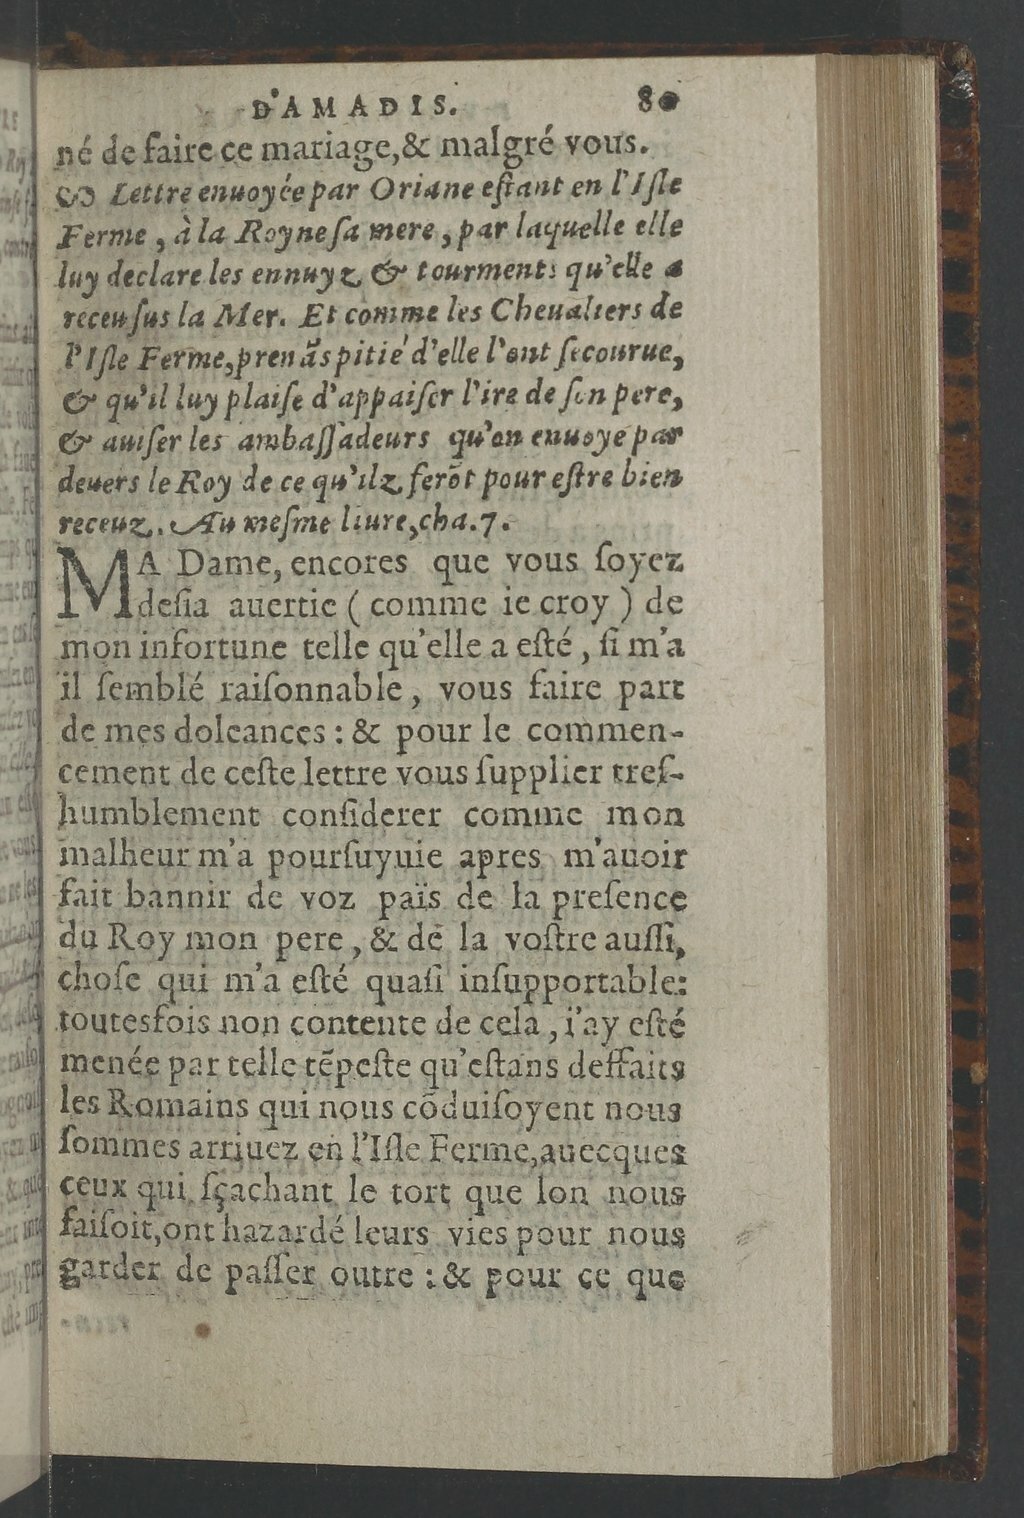 D'AMADIS. 80
né de faire ce mariage,& malgré vous.
Lettre enuoyée par Oriane eſtant en l'Iſle
Ferme, à la Royne ſa mere, par laquelle elle
luy declare les ennuyz & tourments qu'elle a
receu ſus la Mer. Et comme les Cheualiers de
l'Iſle Ferme,prenãs pitié d'elle l'ont ſecourue,
& qu'il luy plaiſe d'appaiſer l'ire de ſon pere,
& auiſer les ambaſſadeurs qu'on enuoye par
deuers le Roy de ce qu'ilz ferõt pour eſtre bien
receuz. Au meſme liure,cha.7.
MA Dame, encores que vous ſoyez
deſia auertie ( comme ie croy ) de
mon infortune telle qu'elle a eſté, ſi m'a
il ſemblé raiſonnable, vous faire part
de mes doleances : & pour le commen-
cement de ceſte lettre vous ſupplier treſ-
humblement conſiderer comme mon
malheur m'a pourſuyuie apres m'auoir
fait bannir de voz païs de la preſence
du Roy mon pere, & de la voſtre auſſi,
choſe qui m'a eſté quaſi inſupportable:
toutesfois non contente de cela, i'ay eſté
menée par telle tẽpeſte qu'eſtans deffaits
les Romains qui nous cõduiſoyent nous
ſommes arriuez en l'Iſle Ferme,auecques
ceux qui ſçachant le tort que lon nous
faiſoit,ont hazardé leurs vies pour nous
garder de paſſer outre : & pour ce que